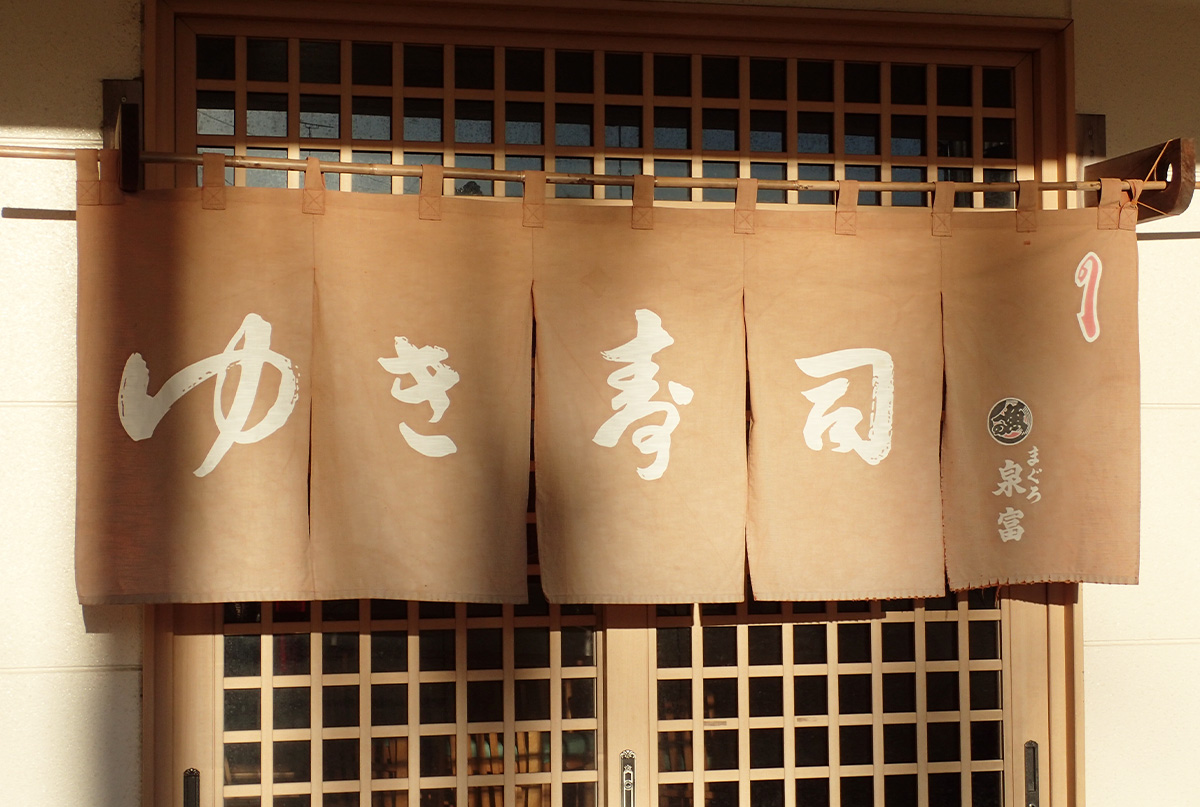 ゆき寿司
まぐろ
泉富